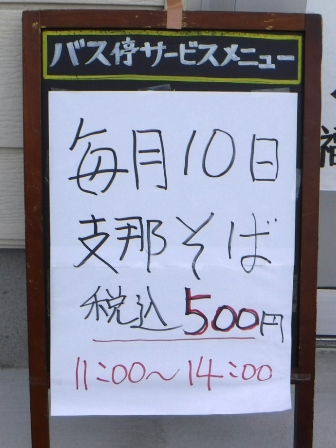 バス停サービスメニュー
毎月10日
支那そば
税込 500円
11:00～14:00